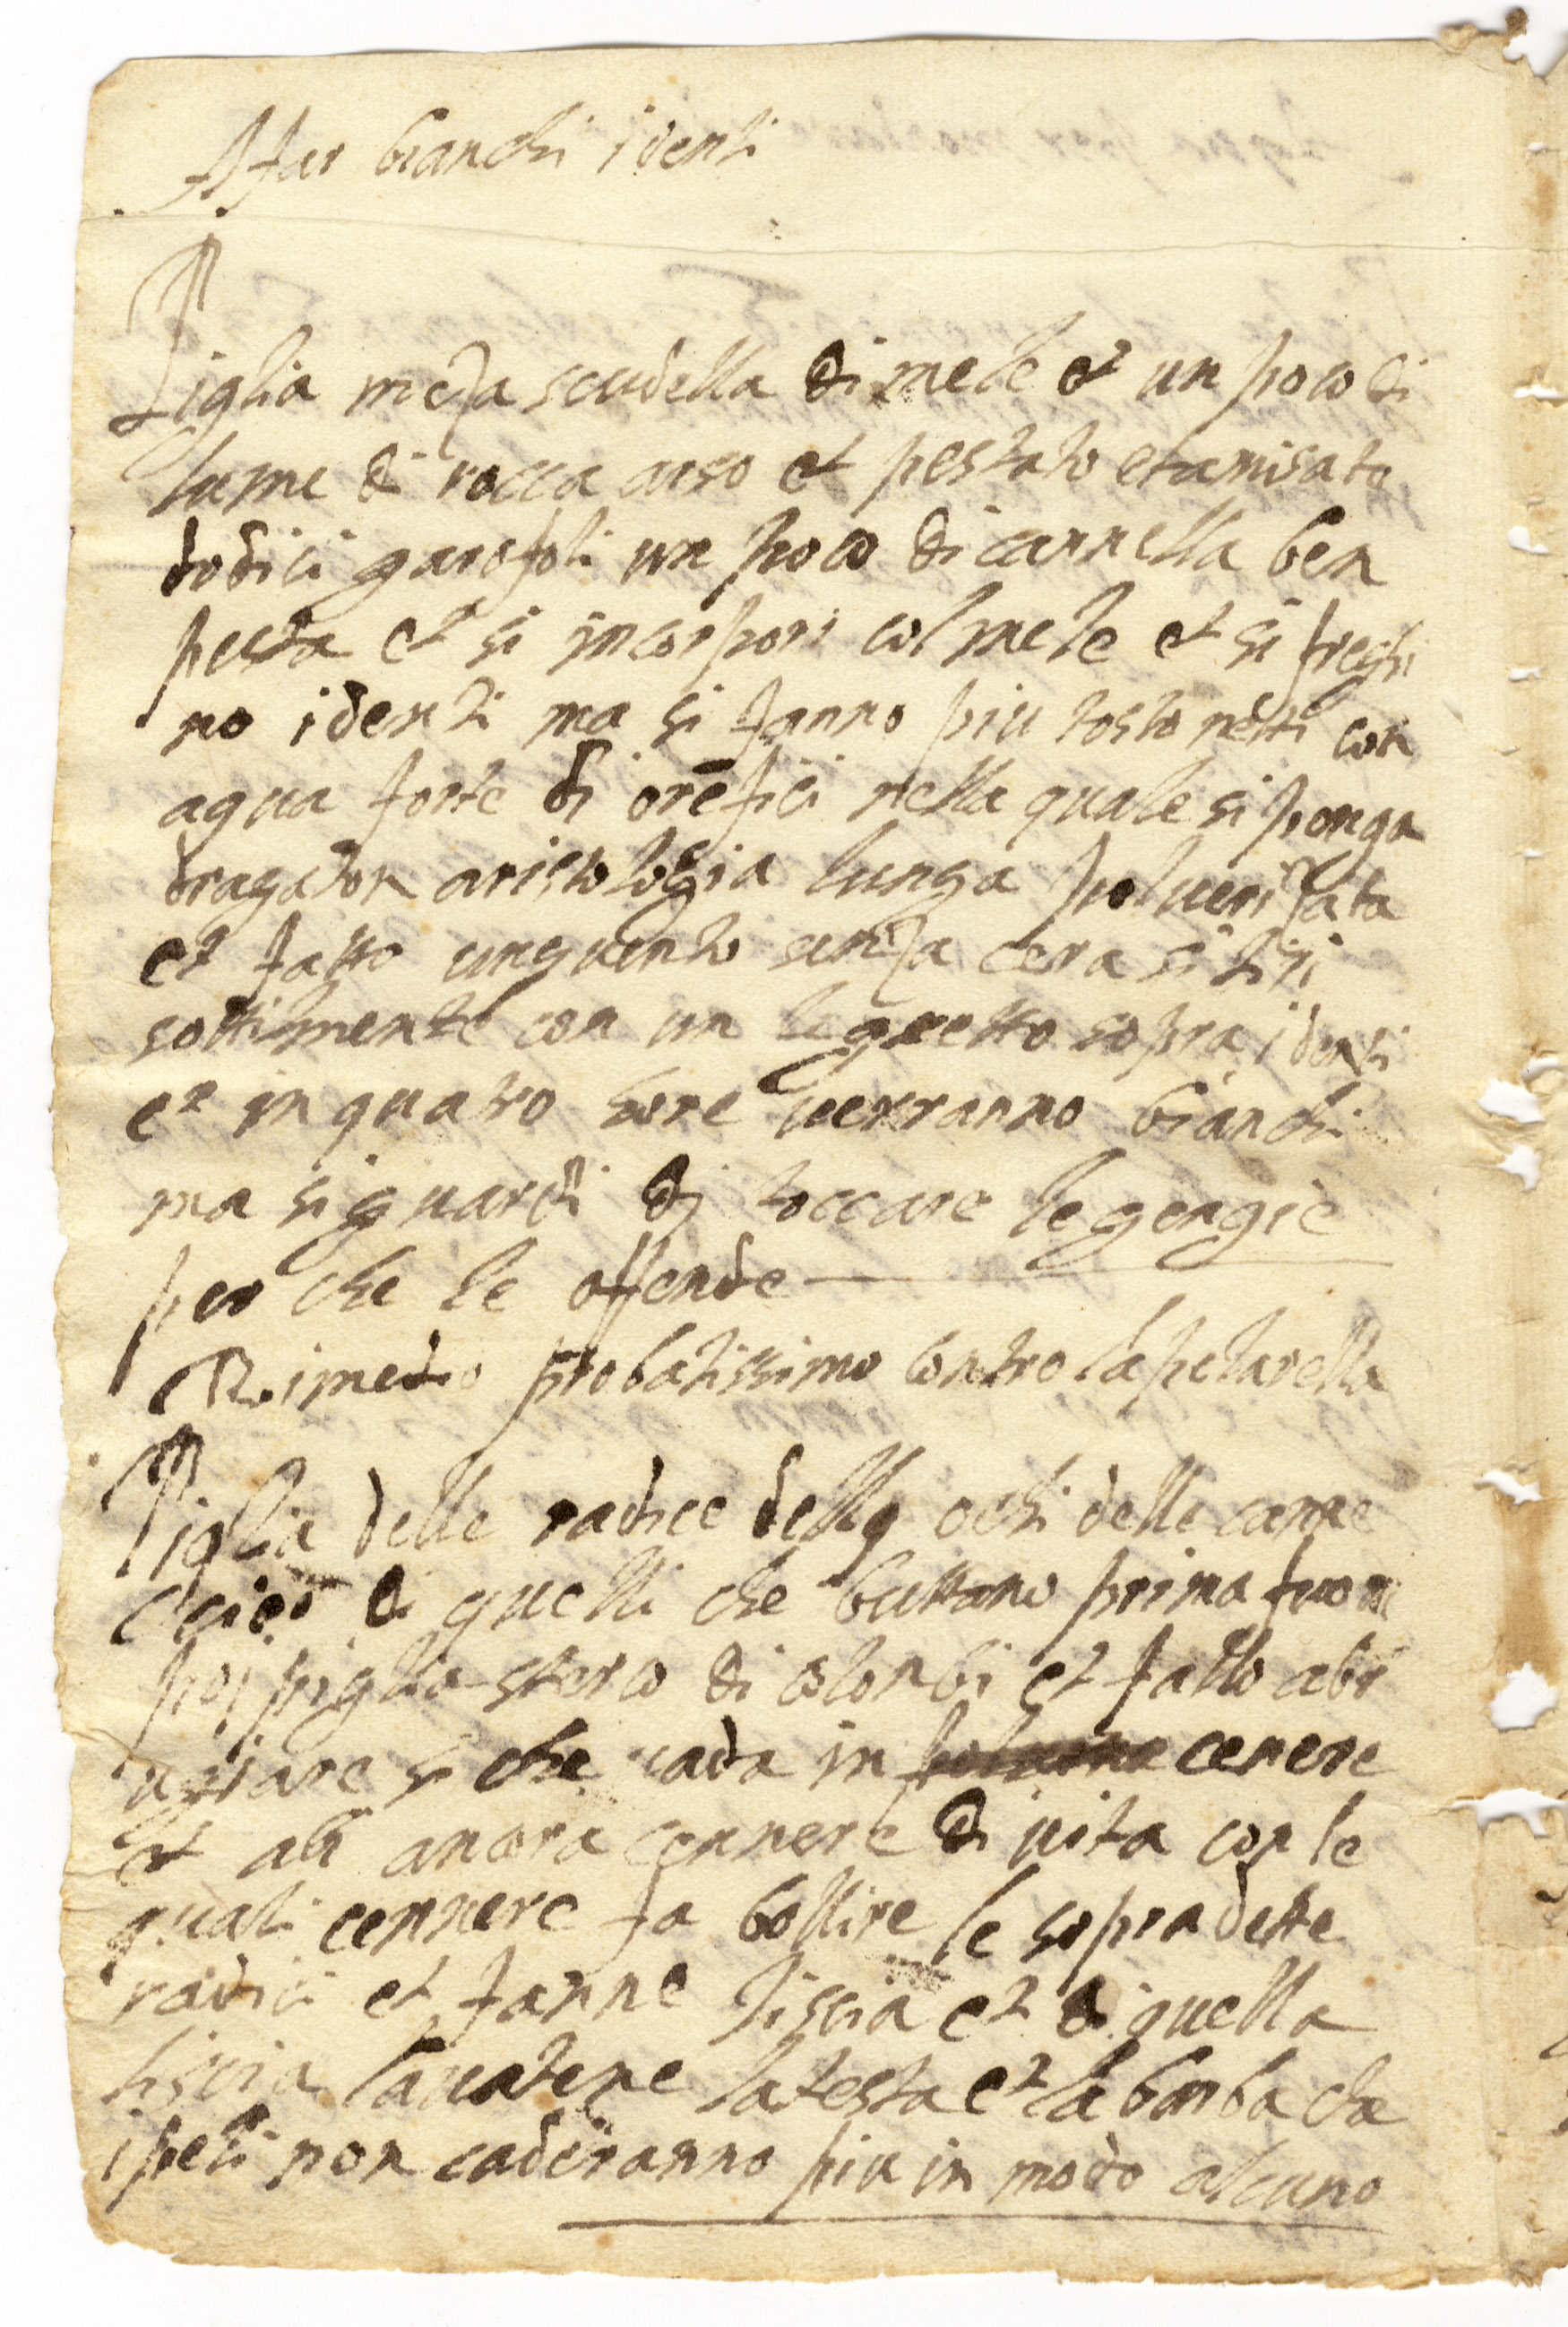 A far bianchi i denti
Piglia meza scudella di mele et un poco di
lume di rocca arso et pestato et amisato
dodici garofoli un poco di cannella ben
pesta et si incorpori col mele et si freghi
no i denti ma si fanno piu tosto netti con
aqua forte di orefici nella quale si ponga
dragaton aristologia lunga poluerizata
et fatto unguento senza cera si tiri
sottilmente con un legnetto sopra i denti
et in quatro hore uerranno bianchi
ma si guardi di toccare le gengie
per che le offende
Rimedio probatissimo contro la pelarella
Piglia delle radice delli ochi delle canne
cioe di quelli che buttano prima fuori
poi piglia sterco di colombi et fallo abr
ugiare si che uada in cenere
et abi ancora cennere di uita con le
quali cennere fa bollire le sopradette
radici et fanne liscia et di quella
liscia lauatene la testa et la barba che
i peli non caderanno piu in modo alcuno